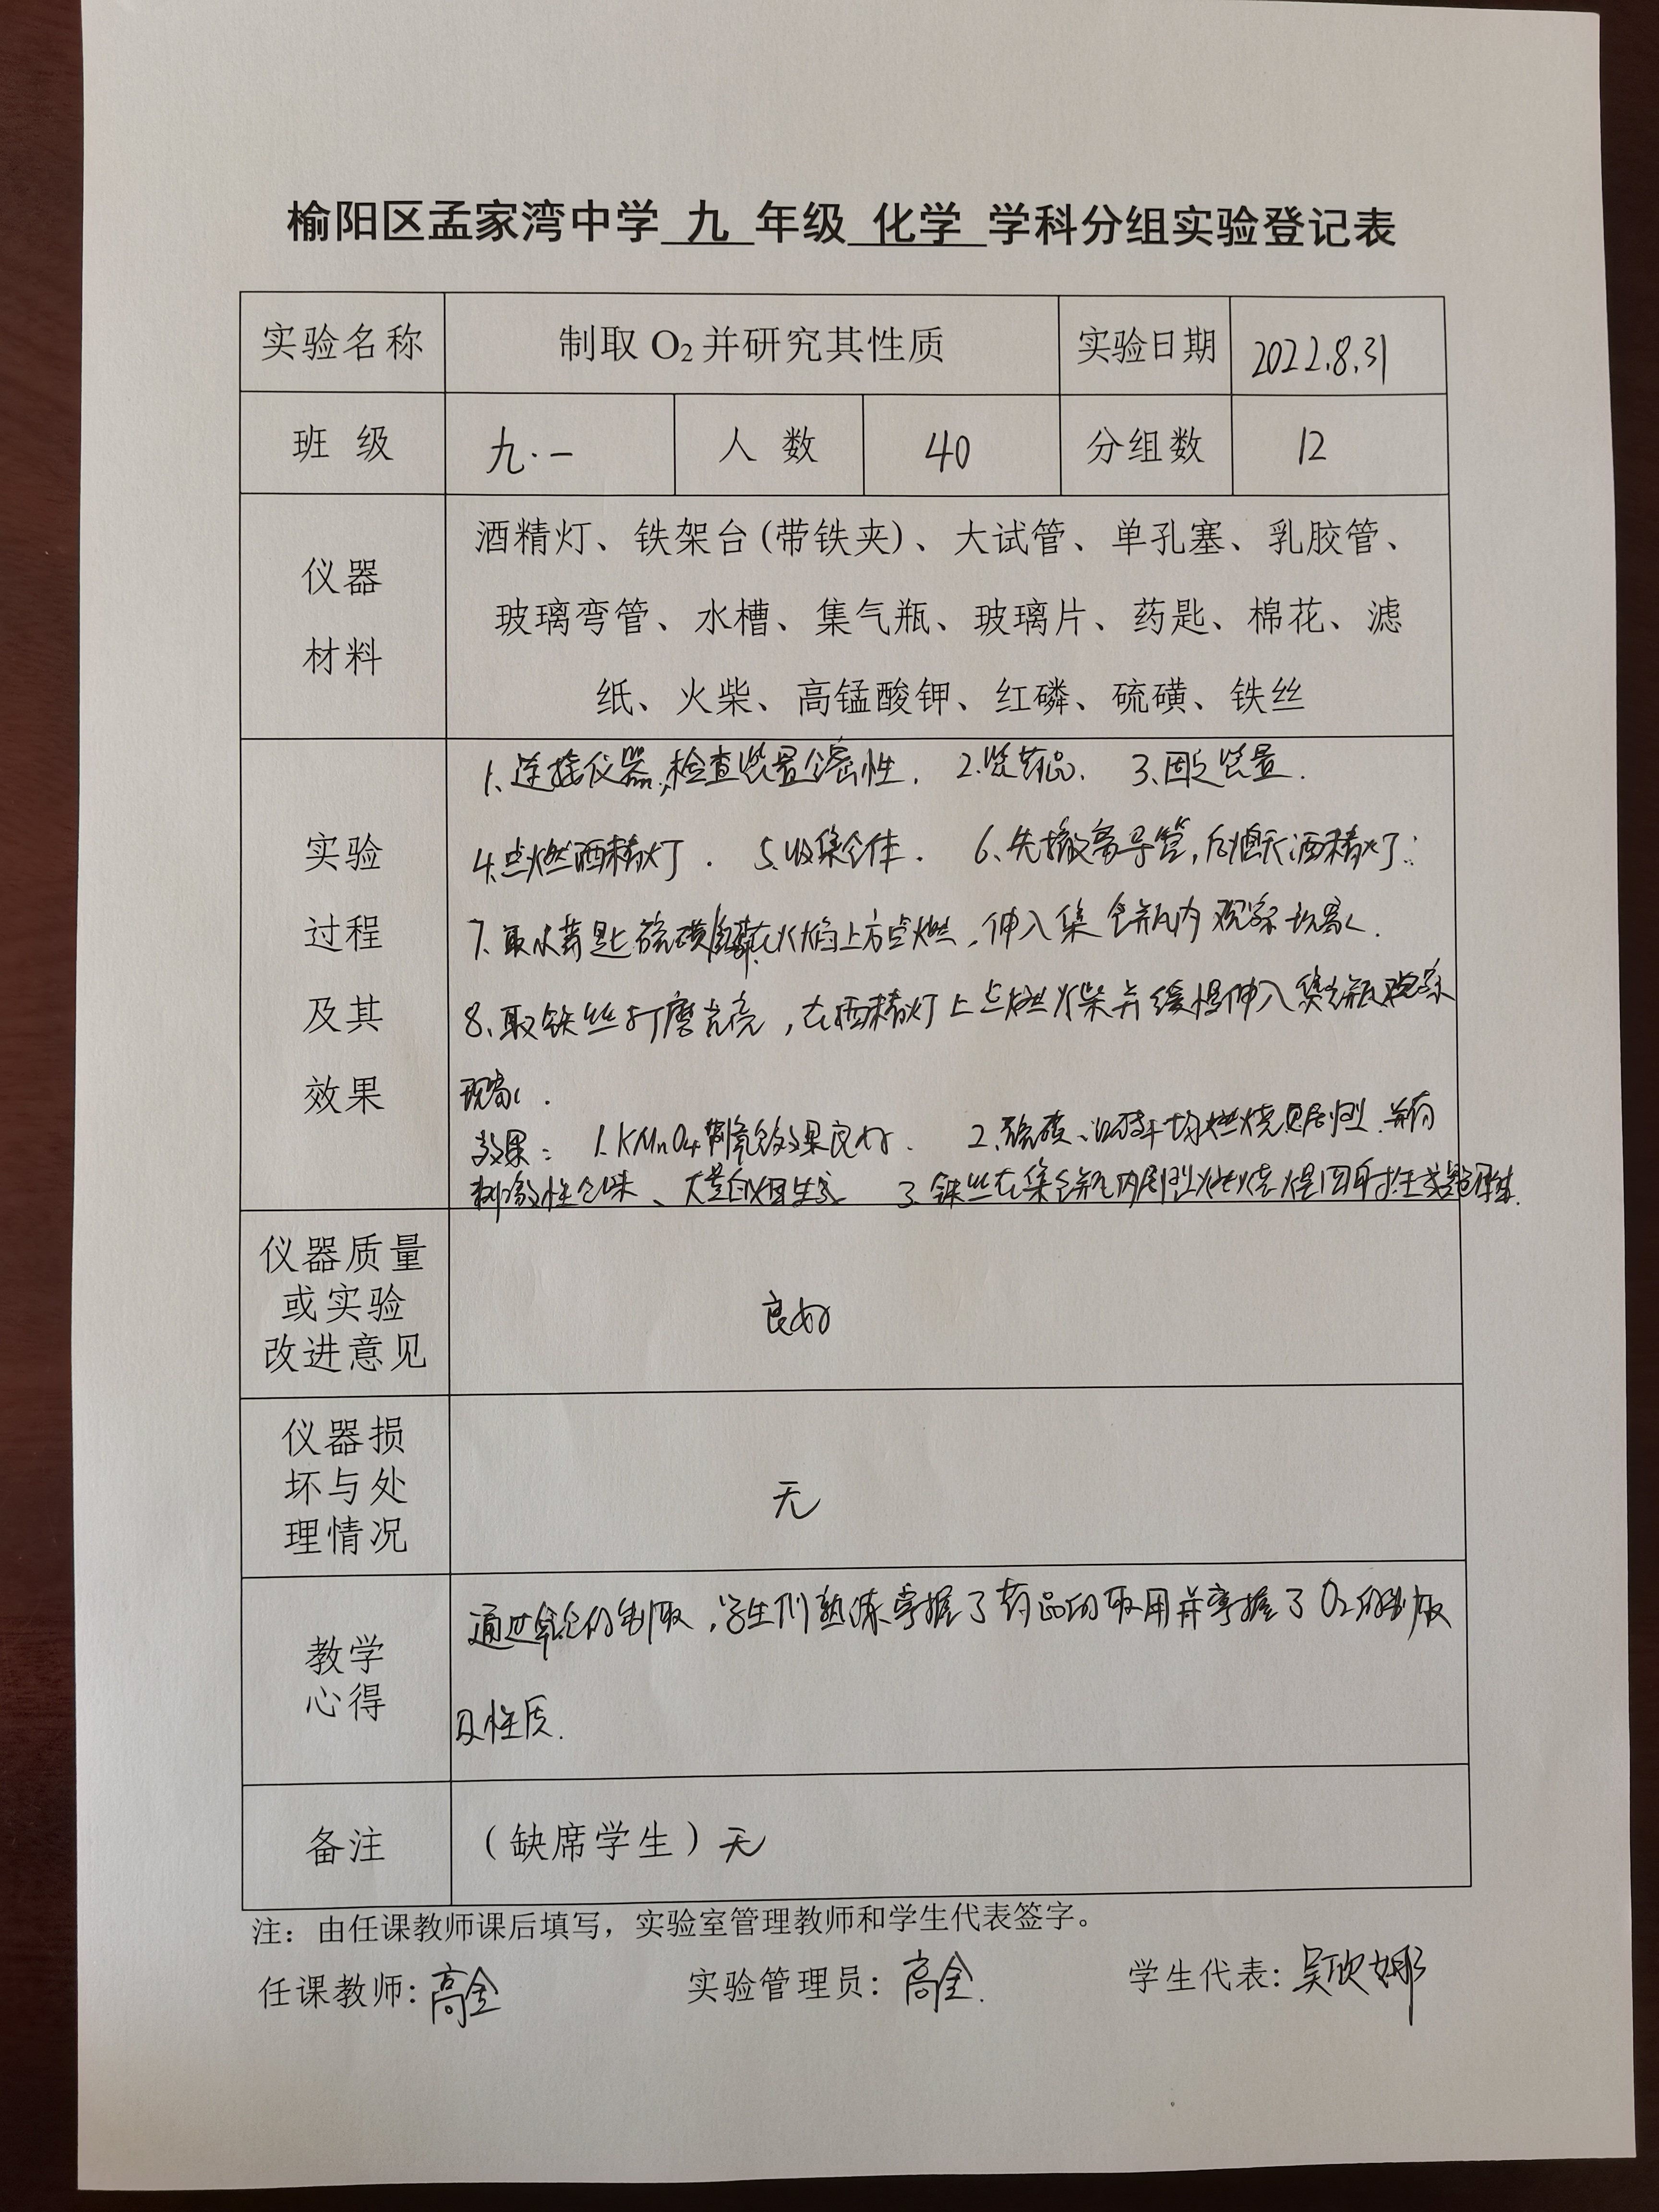 榆阳区孟家湾中学 九 年级 化学 学科分组实验登记表
实验名称 制取 O₂ 并研究其性质 实验日期 2022.8.31
班 级 九·一 人 数 40 分组数 12
仪器
材料
酒精灯、铁架台(带铁夹)、大试管、单孔塞、乳胶管、
玻璃弯管、水槽、集气瓶、玻璃片、药匙、棉花、滤
纸、火柴、高锰酸钾、红磷、硫磺、铁丝
实验
过程
及其
效果
1.连接仪器,检查装置气密性. 2.装药品. 3.固定装置.
4.点燃酒精灯. 5.收集气体. 6.先撤离导管,后熄灭酒精灯.
7.取 药匙硫磺 在火焰上方点燃,伸入集气瓶内观察现象.
8.取铁丝打磨光亮,在酒精灯上点燃火柴并缓慢伸入集气瓶观察
现象.
效果: 1.KMnO₄制氧气效果良好. 2.硫磺、 均燃烧 剧烈,并有
刺激性气味、大量白烟生成 3.铁丝在集气瓶内剧烈燃烧火星四射
仪器质量
或实验
改进意见
良好
仪器损
坏与处
理情况
无
教学
心得
通过氧气的制取,学生们熟练掌握了药品的取用并掌握了O₂的制取
及性质.
备注 (缺席学生)无
注：由任课教师课后填写，实验室管理教师和学生代表签字。
任课教师:高全 实验管理员:高全. 学生代表:吴欣娜